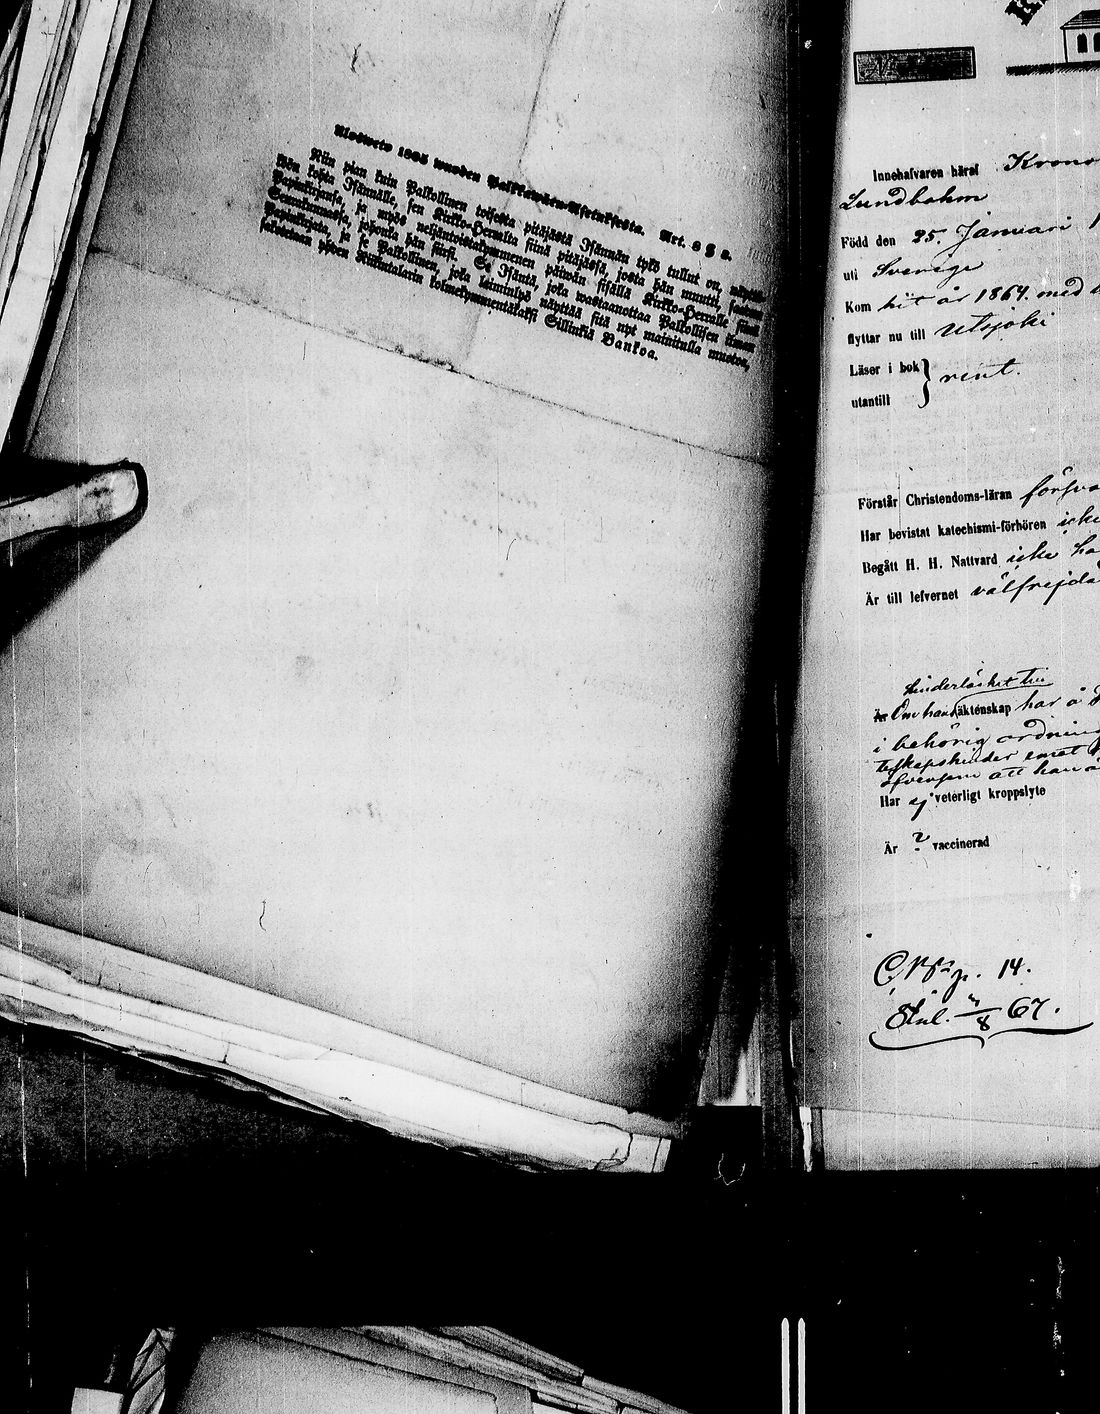 Ulosweto 1805 wuoden Palkkawäen-Asetuksesta. Art. 8 § 2.
Niin pian kuin Palkollinen toisesta pitäjästä Isännän tykö tullut on,
hän kohta Isännälle, sen Kirkko-Herralta siinä pitäjässä, josta hän muutti,
Papinkirjansa, ja myös neljäntoistakymmenen päiwän sisällä Kirkko-Herralle siinä
Seurakunnassa, johonka hän siirsi. Se Isäntä, joka wastaanottaa Palkollisen ilman
Papinkirjata, ja se Palkollinen, joka laiminlyö näyttää sitä nyt mainitulla muotoa,
sakoitetaan yhteen Riikintalarin kolmekymmentäkaksi Sillinkiä Bankoa.
Innehafvaren häraf Krono
Lundbohm
Född den 25. Januari 1
uti Sverige
Kom hit år 1864. med
flyttar nu till Utsjoki
Läser i bok } rent.
utantill
Förstår Christendoms-läran försva
Har bevistat katechismi-förhören icke
Begått H. H. Nattvard icke ha
Är till lefvernet välfrejda
hinderlöshet till
Är Om hans äktenskap har å
i behörig ordning
tenskapshinder
äfvensom att han
Har ej veterligt kroppslyte
Är ? vaccinerad
p. 14.
8 67.